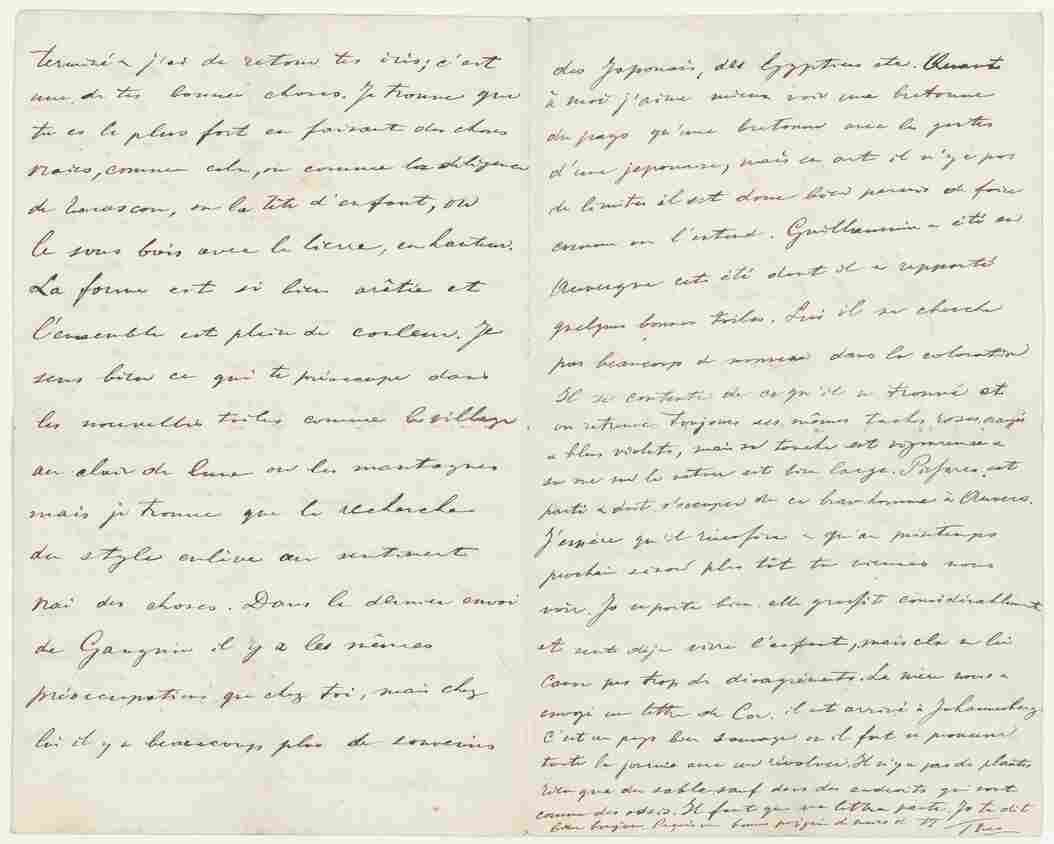 terminé & j'ai de retour tes iris; c'est
une de tes bonnes choses. Je trouve que
tu es le plus fort en faisant des choses
vraies, comme cela, ou comme la diligence
de Tarascon, ou la tête d'enfant, ou
le sous bois avec le lierre, en hauteur.
La forme est si bien arêtée et
l'ensemble est plein de couleur. Je
sens bien ce qui te préoccupe dans
les nouvelles toiles comme le village
au clair de lune ou les montagnes
mais je trouve que la recherche
du style enlève au sentiment
vrai des choses. Dans le dernier envoi
de Gauguin il y a les mêmes
préoccupations que chez toi, mais chez
lui il y a beaucoup plus de souvenirs
des Japonais, des Egyptiens etc. Quant
à moi j'aime mieux voir une bretonne
du pays qu'une bretonne avec les gestes
d'une japonaise, mais en art il n'y a pas
de limites il est donc bien permis de faire
comme on l'entend. Guillaumin a été en
Auvergne cet été dont il a rapporté
quelques bonnes toiles. Lui il ne cherche
pas beaucoup de nouveau dans la coloration
Il se contente de ce qu'il a trouvé et
on retrouve toujours ses mêmes taches roses,
& bleu violets, mais sa touche est vigoureuse &
sa vue sur la nature est bien large. Pissaro est
parti & doit s'occuper de ce brave homme à Auvers.
J'espère qu'il réussira & qu'au printemps
prochain sinon plus tôt tu viennes nous
voir. Jo se porte bien. elle grossit considérablement
et sent déjà vivre l'enfant, mais cela ne lui
cause pas trop de désagréments. La mère nous a
envoyé une lettre de Cor. il est arrivé à Johannesburg
C'est un pays bien sauvage où il faut se promener
toute la journée avec un révolver. Il n'y a pas de plantes
rien que du sable sauf dans des endroits qui sont
comme des oasis. Il faut que ma lettre parte. Jo te dit
bien bonjour. bonne poignée de main de tt Theo